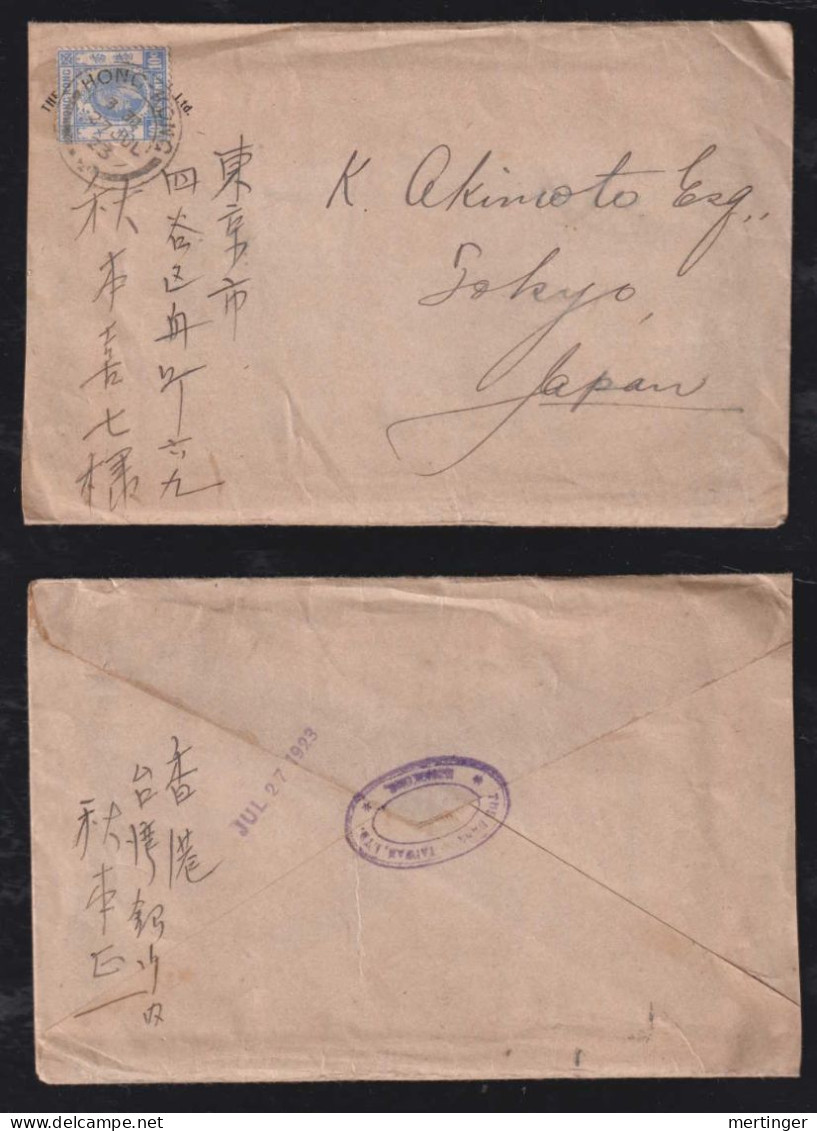 THE
Ltd.
HONG KONG
3 30
27 JUL
23
K. Akimoto Esq.,
Tokyo,
Japan
東京市
四谷区舟町六九
秋本喜七様
JUL 27 1923
TAIWAN, LTD.
HONGKONG
香港
台湾銀行内
秋本正一
mertinger